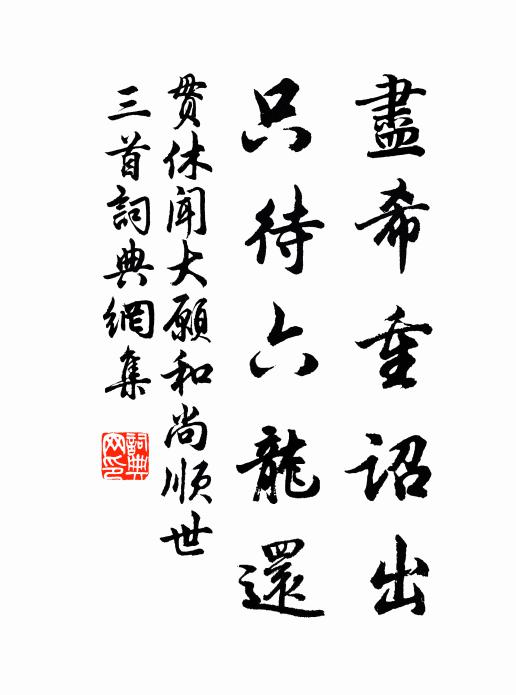 盡希重詔出
只待六龍還
貫休聞大願和尚順世
三首詞典網集
詞典網印